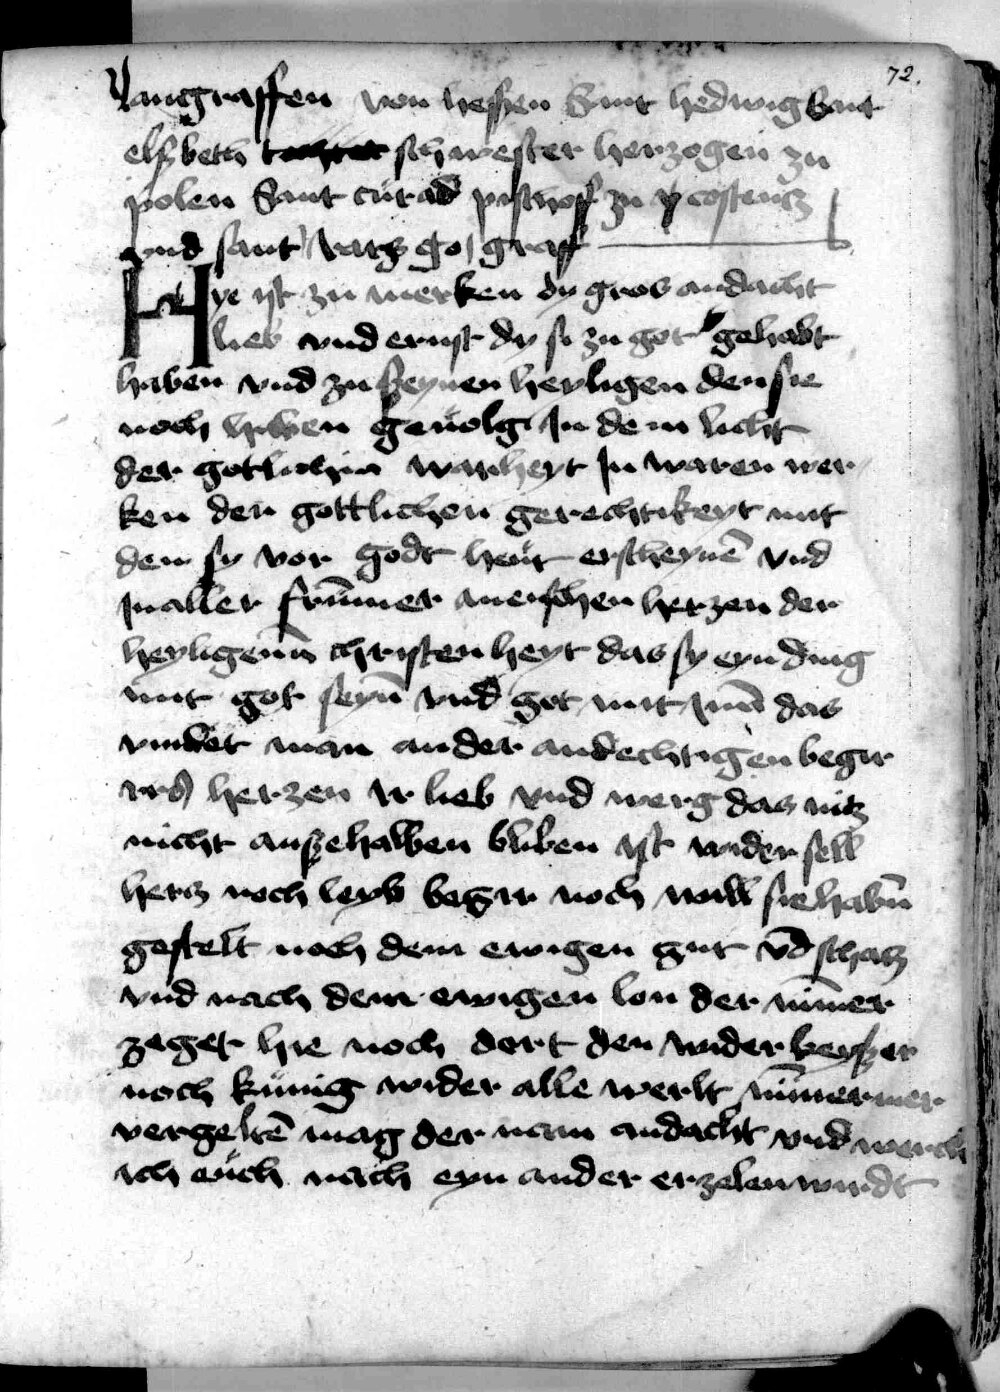 72.
lantgraffen von hessen Sant hedwig Sant
elssbeth tochter schwester herzogen zu
polen Sant cunrad pischoff zu costencz
vnd sant graff
Hye ist zu merken dy gros andacht
lieb vnd ernst dy si zu got gehabt
haben vnd zu seynen heyligen den sie
noch haben geuolgt In dem licht
der gotlichin warheyt In waren wer
ken der gottlichen gerechtikeyt mit
den sy vor Godt heut erscheynē vnd
In aller frūmer menschen herzen der
heyligenn christenheyt das sy eyn ding
mit got seyn vnd got mit das
vindet man an der andechtigen begir
irs herzen Ir lieb vnd werg das nitz
nicht aussehalben bliben ist wider sell
hercz noch leyb begir noch will sie habn̄
gestelt noch dem ewigen gut vn̄d schacz
vnd nach dem ewigen lon der nīmer
zeget hie noch dort den wider keysser
noch kunig wider alle werlt nīmermer
vergeltē mag der nam andacht vnd werch
ich euch nach eyn ander erzelen wirdt